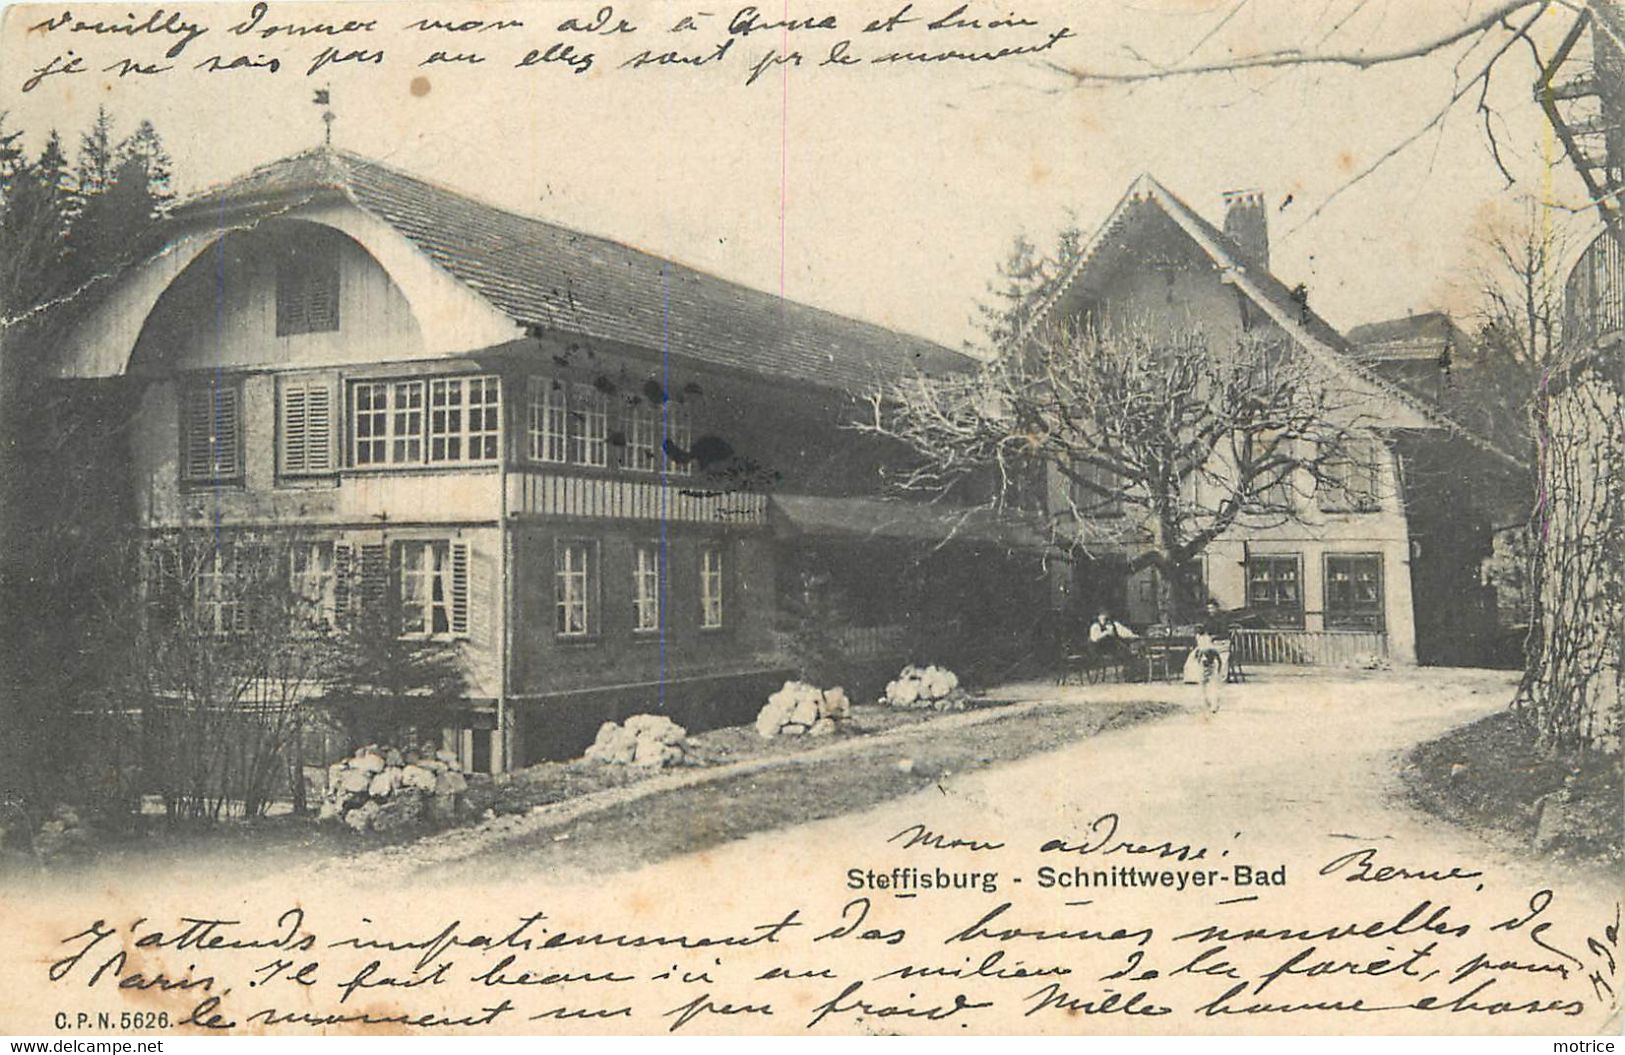 Veuilley donner mon adr à Anna et Lucie
je ne sais pas ou elles sont pr le moment
Mon adresse:
Steffisburg - Schnittweyer-Bad Berne,
J'attends impatiemment des bonnes nouvelles de
Paris, Il fait beau ici au milieu de la forêt, pour
le moment un peu froid. Mille bonne choses
C.P.N. 5626.
www.delcampe.net
motrice